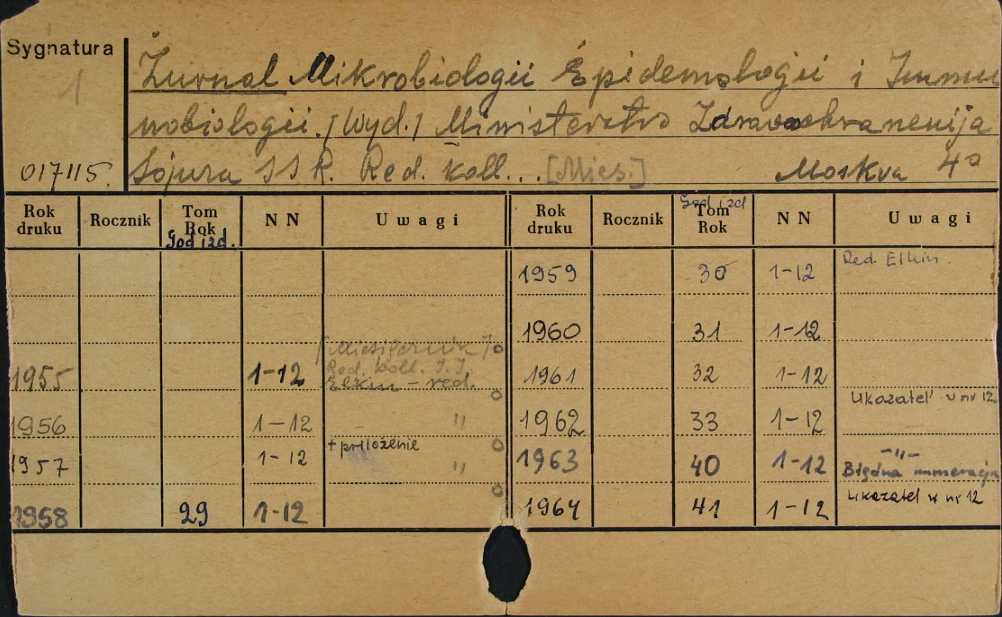 Sygnatura
1
017115.
Žurnal Mikrobiologii Èpidemologii i Immu
nobiologii. /Wyd./ Ministerstvo Zdravoohranenija
Sojuza SSR. Red. koll... [Mies.] Moskva 4°
Rok druku Rocznik Tom Rok God izd. NN Uwagi
1955 1-12 [Miesięcznik] Red. koll. I. I. Elkin - red.
1956 1-12 "
1957 1-12 + priloženie "
1958 29 1-12
Rok druku Rocznik God izd Tom Rok NN Uwagi
1959 30 1-12 Red. Elkin.
1960 31 1-12
1961 32 1-12
1962 33 1-12 Ukazatel' w nr 12
1963 40 1-12 -"- Błędna numeracja
1964 41 1-12 Ukazatel w nr 12